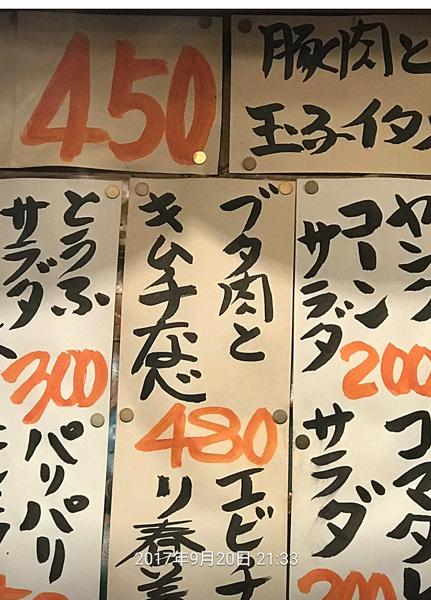 450
豚肉と
玉子イタ
ヤング
コーン
サラダ
200
ブタ肉と
キムチなべ
480
とうふ
サラダ
300
コマタ
サラダ
200
エビ
リ春
パリパリ
2017年9月20日 21:33